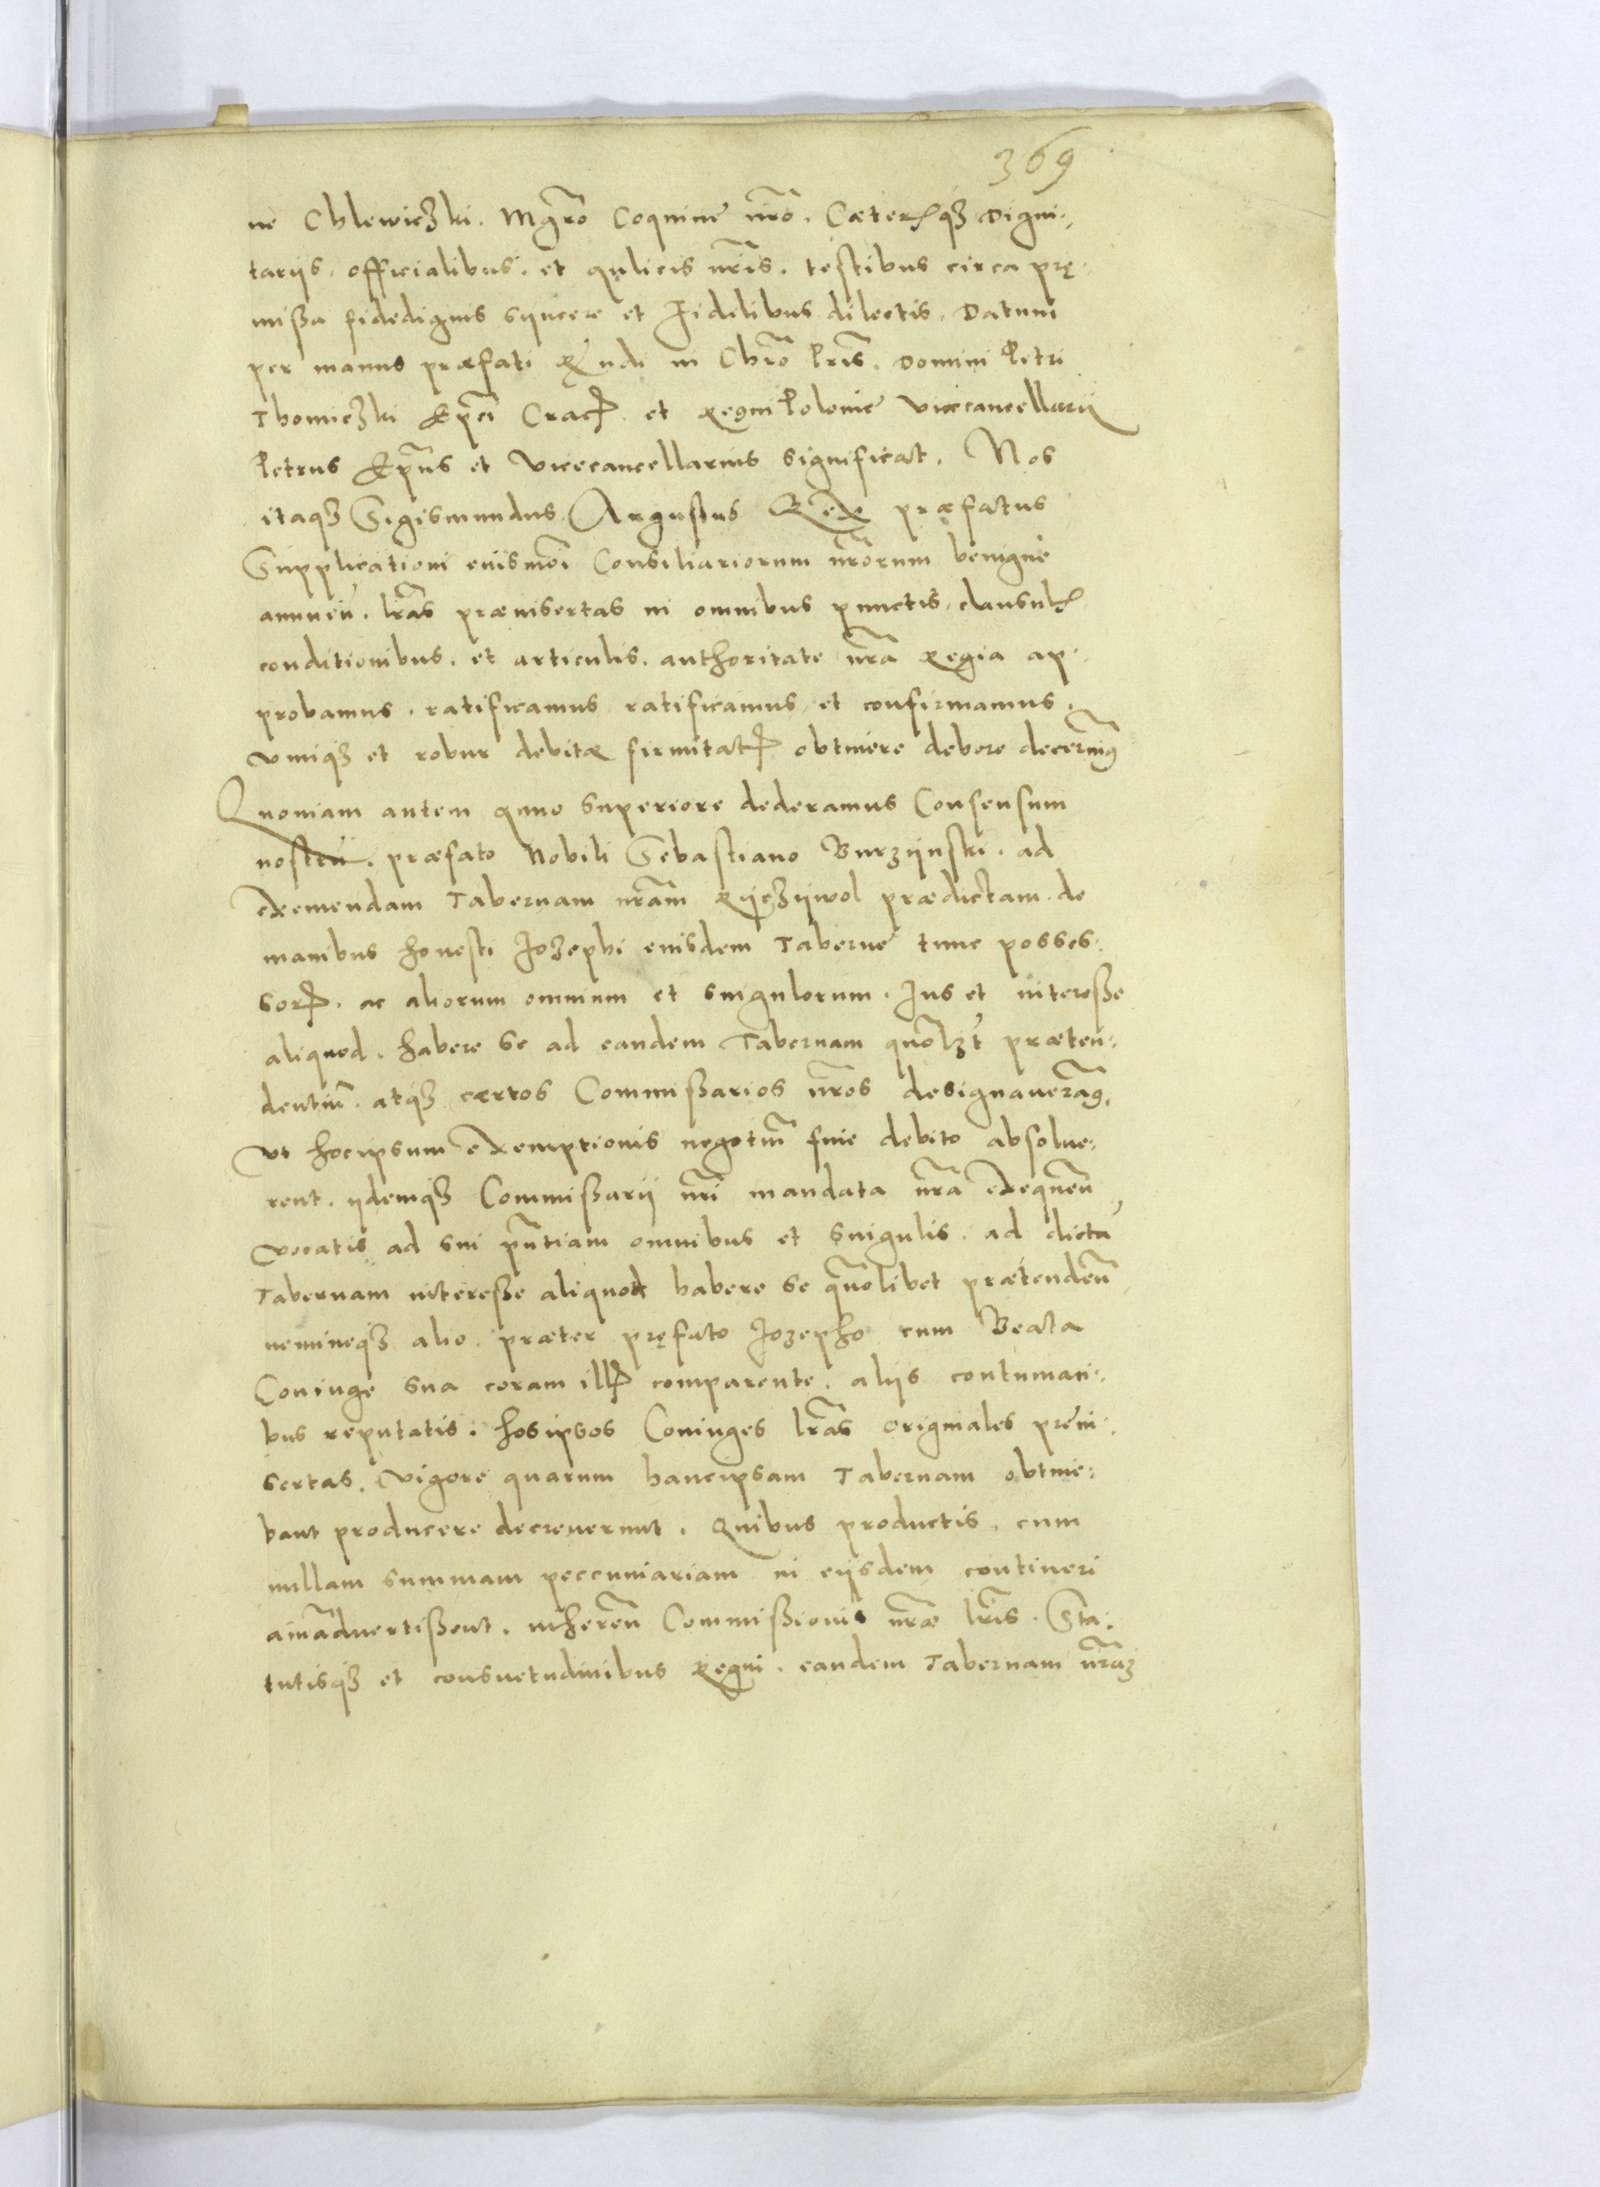 369
ne Chlewiczki. Mgro Coquine nro. Cæterisqz Digni-
tariis, officialibus, et aulicis nris, testibus circa prę-
missa fidedignis syncere et Fidelibus dilectis, Datum
per manus præfati Rndi in Chro Pris, Domini Petri
Thomiczki Epci Crac et Regni Polonie Vicecancellarii
Petrus Epus et Vicecancellarius significat. Nos
itaqz Sigismundus Augustus Rex præfatus
Supplicationi eiusmoi Consiliariorum nrorum benigne
annuen. lras præinsertas in omnibus punctis, clausulis
conditionibus, et articulis, authoritate nra Regia ap-
probamus, ratificamus ratificamus et confirmamus,
vimqz et robur debitæ firmitatis obtinere debere decernimus
Quoniam autem anno superiore dederamus Consensum
nostru, præfato Nobili Sebastiano Burzynski, ad
exemendam Tabernam nram Ryczywol prædictam de
manibus honesti Jozephi eiusdem Taberne tunc posses-
soris, ac aliorum omnium et singulorum, Jus et interesse
aliquod, habere se ad eandem Tabernam quolzt præten-
dentiu, atqz certos Commissarios nros designaveramus,
vt hocipsum exemptionis negotiu fine debito absolve-
rent, iidemqz Commissarii nri mandata nra exequen
vocatis ad sui pntiam omnibus et singulis, ad dicta
Tabernam interesse aliquod habere se quolibet prætenden
nemineqz alio, præter pręfato Jozepho cum Beata
Coniuge sua coram illis comparente, aliis contumaci-
bus reputatis, hosipsos Coniuges lras originales prein-
sertas, vigore quarum hancipsam Tabernam obtine-
bant producere decreverunt. Quibus productis, cum
nullam summam peccuniariam in eiisdem contineri
aimadvertissent, inheren Commissionis nræ lris, Sta-
tutisqz et consuetudinibus Regni, eandem Tabernam nraz